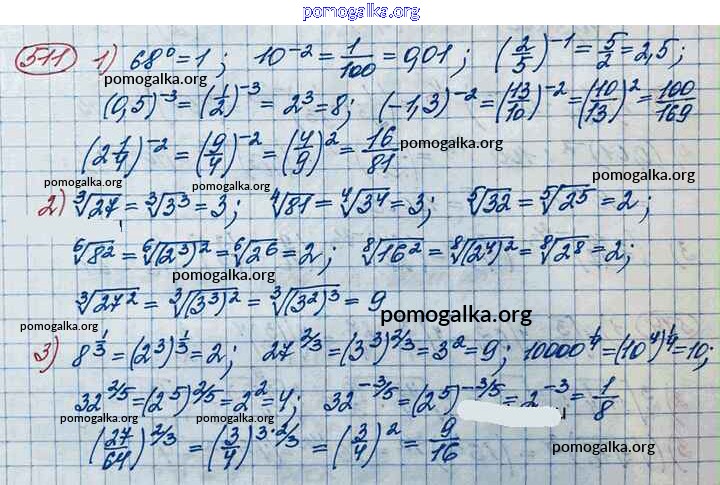 pomogalka.org
511 1) 68⁰ = 1; 10⁻² = 1/100 = 0,01; (2/5)⁻¹ = 5/2 = 2,5;
pomogalka.org
(0,5)⁻³ = (1/2)⁻³ = 2³ = 8; (-1,3)⁻² = (13/10)⁻² = (10/13)² = 100/169
(2 1/4)⁻² = (9/4)⁻² = (4/9)² = 16/81
pomogalka.org
pomogalka.org pomogalka.org pomogalka.org
2) ∛27 = ∛3³ = 3; ∜81 = ∜3⁴ = 3; ⁵√32 = ⁵√2⁵ = 2;
pomogalka.org
⁶√8² = ⁶√(2³)² = ⁶√2⁶ = 2; ⁸√16² = ⁸√(2⁴)² = ⁸√2⁸ = 2;
pomogalka.org
∛27² = ∛(3³)² = ∛(3²)³ = 9
pomogalka.org
pomogalka.org
3) 8^(1/3) = (2³)^(1/3) = 2; 27^(2/3) = (3³)^(2/3) = 3² = 9; 10000^(1/4) = (10⁴)^(1/4) = 10;
32^(2/5) = (2⁵)^(2/5) = 2² = 4; 32^(-3/5) = (2⁵)^(-3/5) = 2⁻³ = 1/8
pomogalka.org pomogalka.org pomogalka.org
(27/64)^(2/3) = (3/4)^(3·2/3) = (3/4)² = 9/16
pomogalka.org